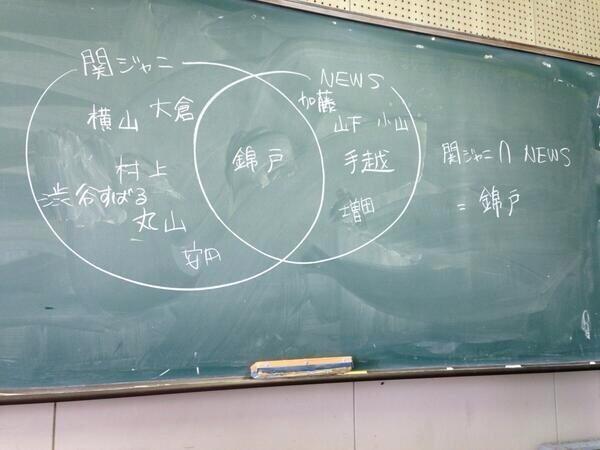 関ジャニ
横山
大倉
村上
渋谷すばる
丸山
安田
錦戸
NEWS
加藤
山下
小山
手越
増田
関ジャニ∩NEWS
=錦戸